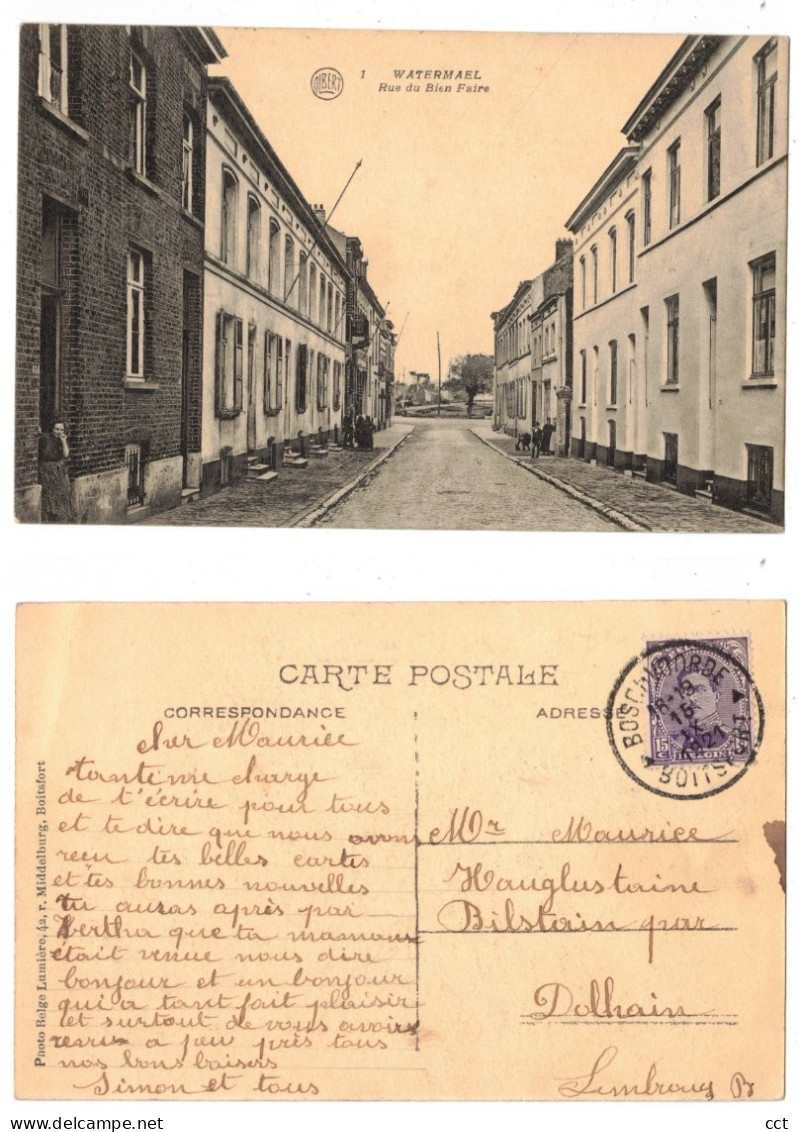 ALBERT
1 WATERMAEL
Rue du Bien Faire
CARTE POSTALE
CORRESPONDANCE
ADRESSE
BOSCHVOORDE
18-19
15
IX
1921
BOITSFORT
15
C
cher Maurice
tantine charge
de t'écrire pour tous
et te dire que nous avons
reçu tes belles cartes
et tes bonnes nouvelles
tu auras après par
Bertha que ta maman
était venue nous dire
bonjour et un bonjour
qui a tant fait plaisir
et surtout de vous avoir
revus a peu près tous
nos bons baisers
Simon et tous
Mr Maurice
Hauglustaine
Bilstain par
Dolhain
Limbourg
Photo Belge Lumière, 42, r. Middelburg, Boitsfort
cct